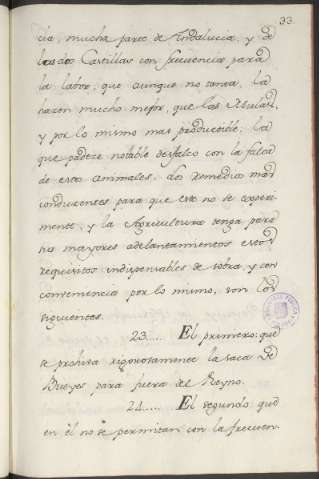 33
cia, mucha parte de Andalucia, y de
las dos Castillas con frecuencia para
la labor, que aunque no tanta, la
hacen mucho mejor, que las Mulas,
y por lo mismo mas productible; la
que padece notable desfalco con la falta
de estos animales. Los remedios mas
conducentes para que este no se experi-
mente, y la Agricultura tenga para
sus mayores adelantamientos estos
requisitos indispensables de sobra, y con
conveniencia por lo mismo, son los
siguientes.
23..... El primero: que
se prohiva rigorosamente la saca de
Bueyes para fuera del Reyno.
24..... El segundo: que
en èl no se permitan con la frecuen-